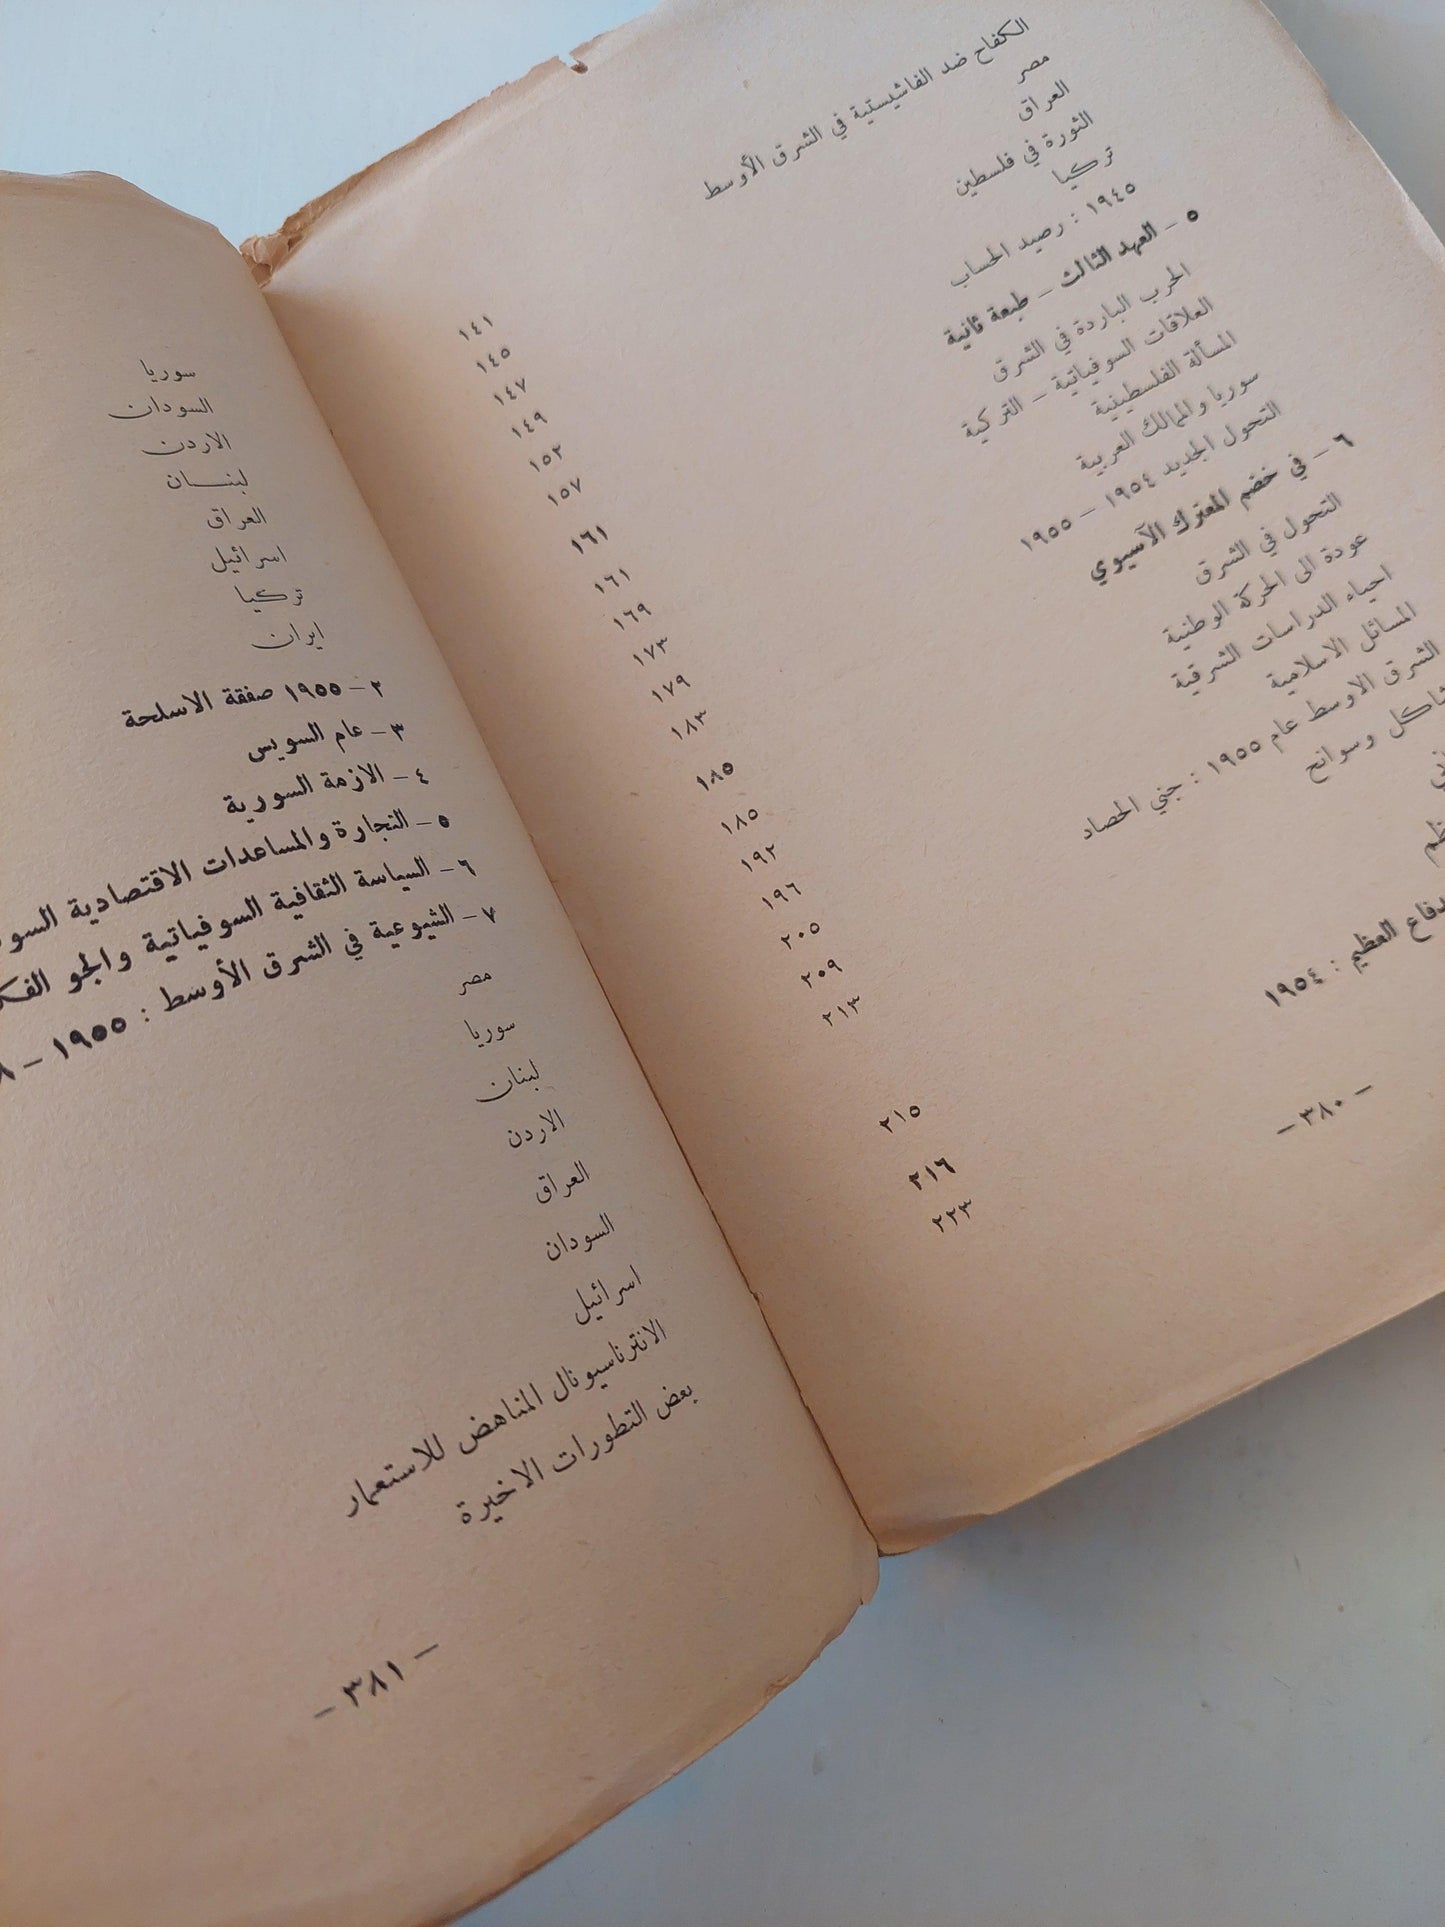 الكفاح ضد الفاشيستية في الشرق الأوسط ١٤١
مصر ١٤٥
العراق ١٤٧
الثورة في فلسطين ١٤٩
تركيا ١٥٣
١٩٤٥ : رصيد الحساب ١٥٧
٥ – العهد الثالث – طبعة ثانية ١٦١
الحرب الباردة في الشرق ١٦١
العلاقات السوفياتية – التركية ١٦٩
المسألة الفلسطينية ١٧٣
سوريا والممالك العربية ١٧٩
التحول الجديد ١٩٥٤ – ١٩٥٥ ١٨٣
٦ – في خضم المعترك الآسيوي ١٨٥
التحول في الشرق ١٨٥
عودة الى الحركة الوطنية ١٩٢
احياء الدراسات الشرقية ١٩٦
المسائل الاسلامية ٢٠٥
الشرق الاوسط عام ١٩٥٥ : جني الحصاد ٢٠٩
وسوانح ٢١٣
٢١٥
العظيم : ١٩٥٤ ٢١٦
٢٢٣
– ٣٨٠ –
سوريا
السودان
الاردن
لبنان
العراق
اسرائيل
تركيا
ايران
٢ – ١٩٥٥ صفقة الاسلحة
٣ – عام السويس
٤ – الازمة السورية
٥ – التجارة والمساعدات الاقتصادية
٦ – السياسة الثقافية السوفياتية والجو
٧ – الشيوعية في الشرق الأوسط : ١٩٥٥ –
مصر
سوريا
لبنان
الاردن
العراق
السودان
اسرائيل
الانترناسيونال المناهض للاستعمار
بعض التطورات الاخيرة
– ٣٨١ –